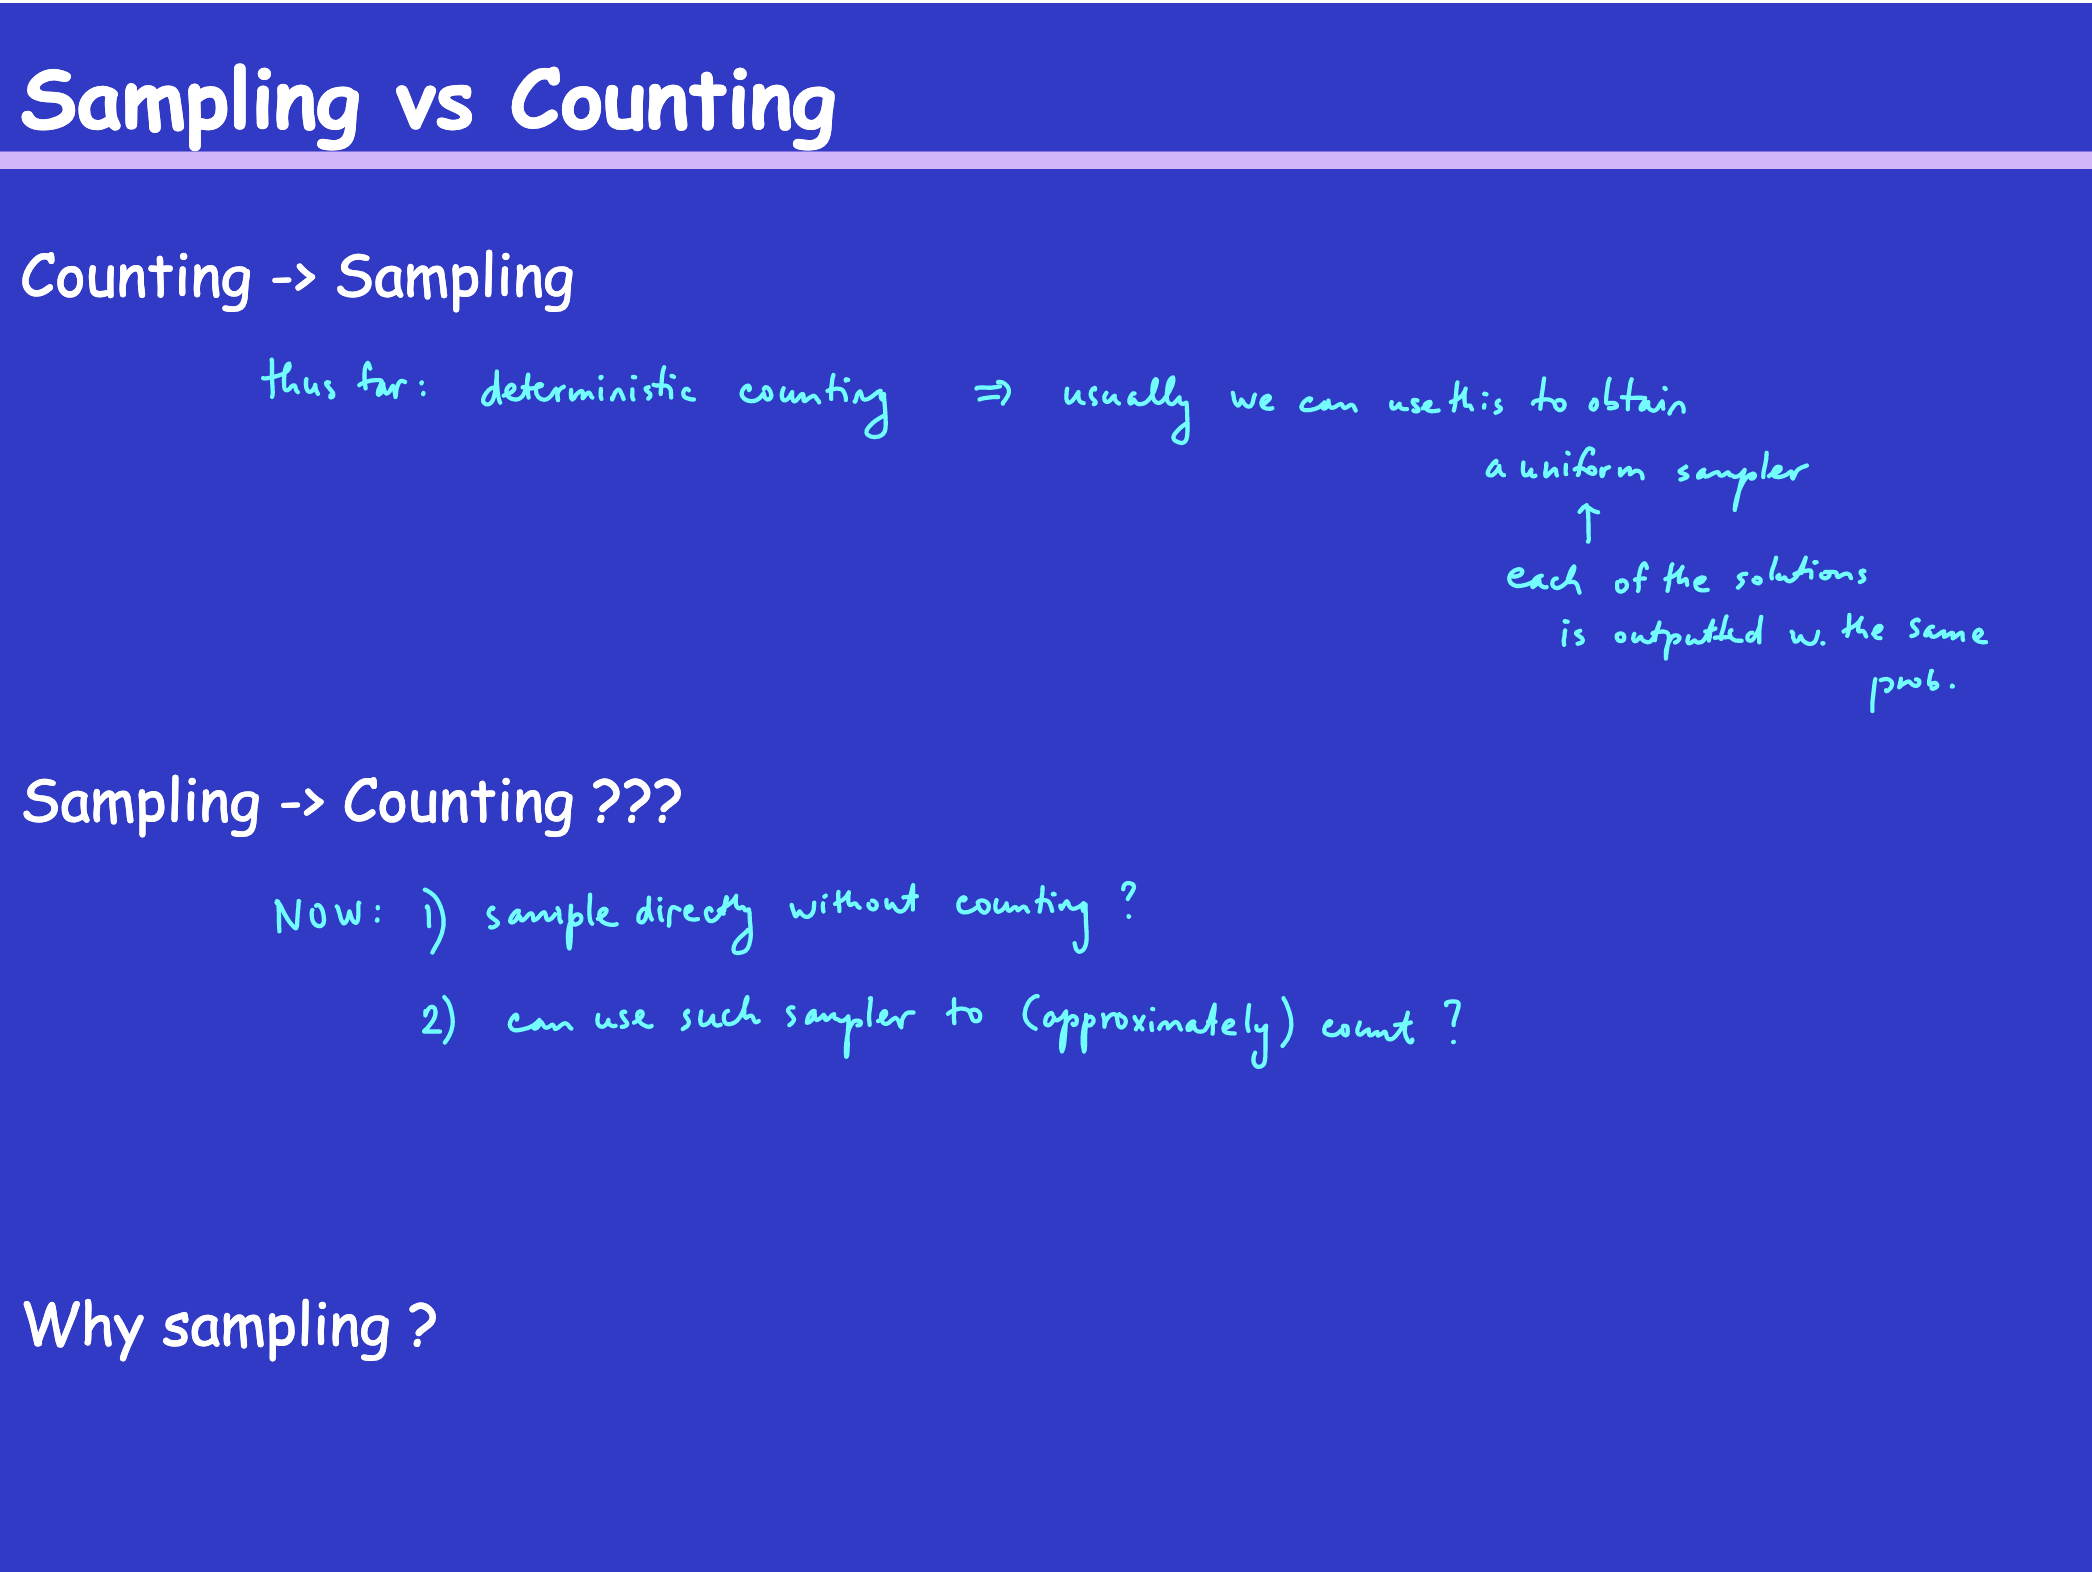 Sampling vs Counting
Counting -> Sampling
thus far: deterministic counting ⇒ usually we can use this to obtain
a uniform sampler
↑
each of the solutions
is outputted w. the same
prob.
Sampling -> Counting ???
NOW: 1) sample directly without counting ?
2) can use such sampler to (approximately) count ?
Why sampling ?